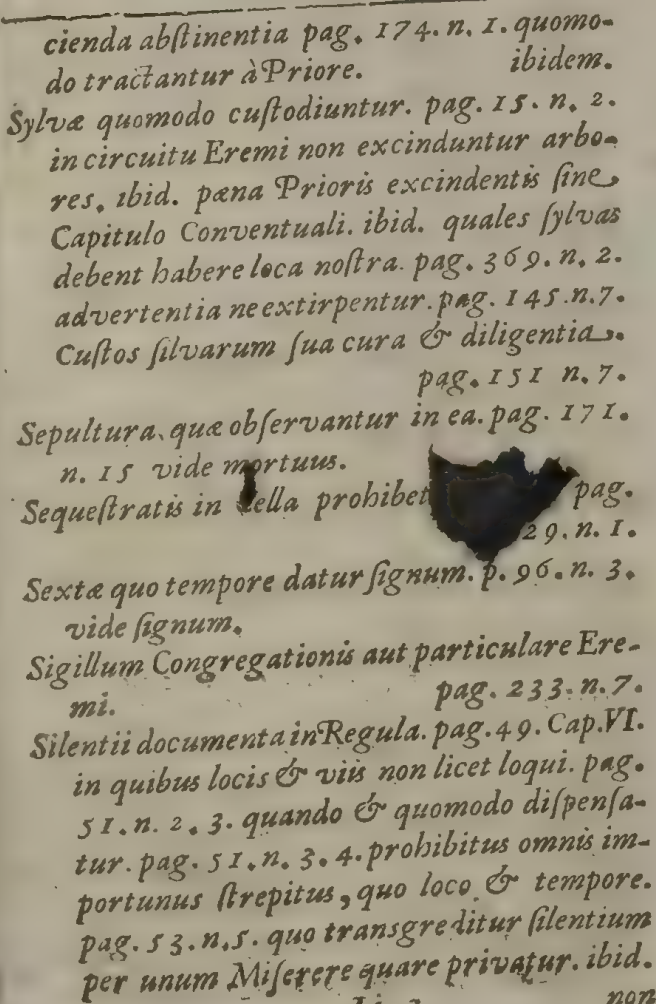 cienda abſtinentia pag. 174. n. 1. quomo-
do tractantur à Priore. ibidem.
Sylvæ quomodo cuſtodiuntur. pag. 15. n. 2.
in circuitu Eremi non excinduntur arbo-
res. ibid. pæna Prioris excindentis ſine
Capitulo Conventuali. ibid. quales ſylvas
debent habere loca noſtra. pag. 369. n. 2.
advertentia ne extirpentur. pag. 145. n. 7.
Cuſtos ſilvarum ſua cura & diligentia.
pag. 151 n. 7.
Sepultura, quæ obſervantur in ea. pag. 171.
n. 15 vide mortuus.
Sequeſtratis in prohibet pag.
29. n. 1.
Sextæ quo tempore datur ſignum. p. 96. n. 3.
vide ſignum.
Sigillum Congregationis aut particulare Ere-
mi. pag. 233. n. 7.
Silentii documenta in Regula. pag. 49. Cap. VI.
in quibus locis & viis non licet loqui. pag.
51. n. 2. 3. quando & quomodo diſpenſa-
tur. pag. 51. n. 3. 4. prohibitus omnis im-
portunus ſtrepitus, quo loco & tempore.
pag. 53. n. 5. quo transgreditur ſilentium
per unum Miſerere quare privatur. ibid.
non